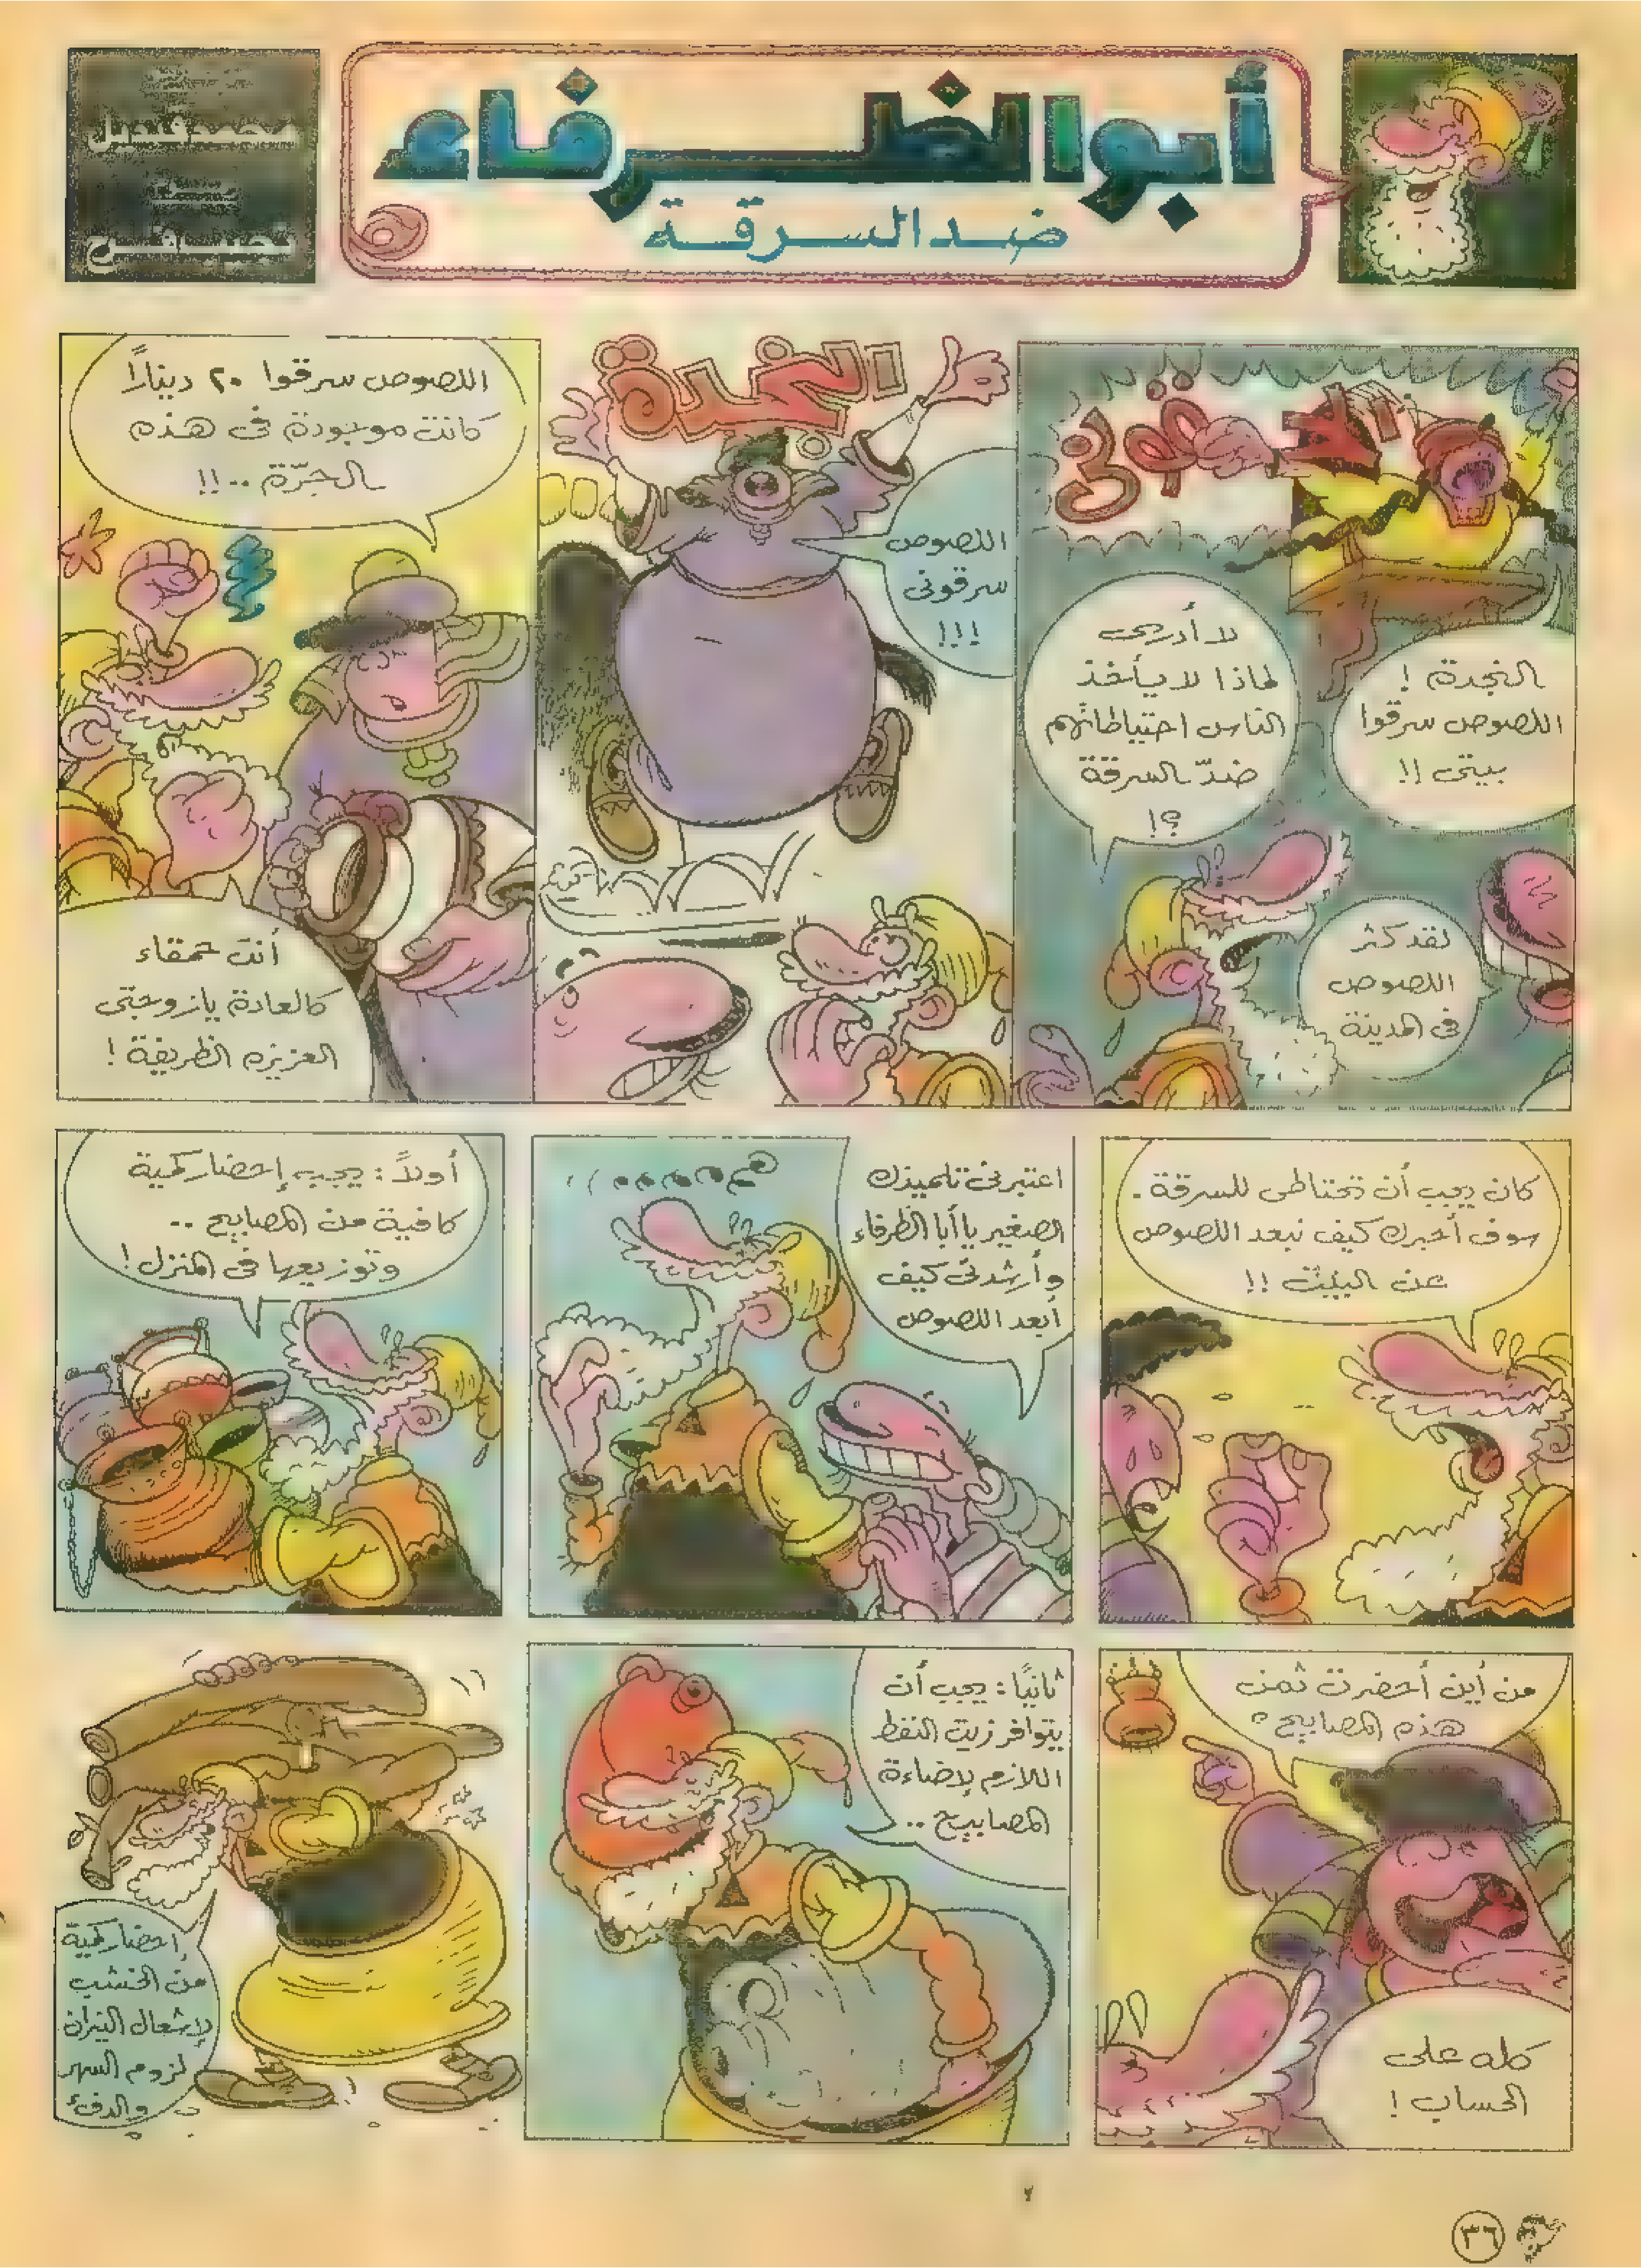 أبو الظرفاء
ضد السرقة
الحقوني
النجدة!
اللصوص سرقوا
بيتي!!
لا أدري
لماذا لا يأخذ
الناس احتياطاتهم
ضدّ السرقة
؟!
لقد كثر
اللصوص
في المدينة
النجدة
اللصوص
سرقوني
!!!
اللصوص سرقوا ٢٠ دينارًا
كانت موجودة في هذه
الجرّة ..!!
أنت حمقاء
كالعادة يا زوجتي
العزيزه الظريفة!
كان يجب أن تحتاطي للسرقة.
سوف أخبرك كيف نبعد اللصوص
عن البيت !!
اعتبرني تلميذك
الصغير يا أبا الظرفاء
وأرشدني كيف
أبعد اللصوص
أولاً: يجب إحضار كمية
كافية من المصابيح ..
وتوزيعها في المنزل!
من أين أحضرت ثمن
هذه المصابيح؟
كله على
الحساب!
ثانيًا: يجب أن
يتوافر زيت النفط
اللازم لإضاءة
المصابيح ..
إحضار كمية
من الخشب
لإشعال النيران
لزوم السهر
والدفئ
٢
٣٦